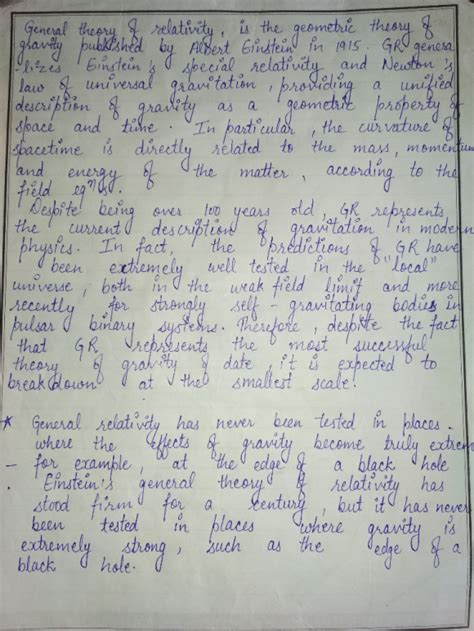 General theory of relativity, is the geometric theory of
gravity published by Albert Einstein in 1915. GR genera
-lizes Einstein's special relativity and Newton's
law of universal gravitation, providing a unified
description of gravity as a geometric property of
space and time. In particular, the curvature of
spacetime is directly related to the mass, momentum
and energy of the matter, according to the
field eqⁿs.
Despite being over 100 years old, GR represents
the current description of gravitation in modern
physics. In fact, the predictions of GR have
been extremely well tested in the "local"
universe, both in the weak field limit and more
recently for strongly self-gravitating bodies in
pulsar binary systems. Therefore, despite the fact
that GR represents the most successful
theory of gravity of date, it is expected to
break down at the smallest scale.
* General relativity has never been tested in places.
where the effects of gravity become truly extrem
- for example, at the edge of a black hole
. Einstein's general theory of relativity has
stood firm for a century, but it has never
been tested in places where gravity is
extremely strong, such as the edge of a
black hole.